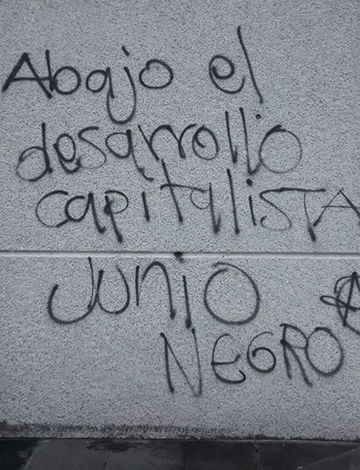 Abajo el
desarrollo
capitaliSTA
JUNIO
NEGRO